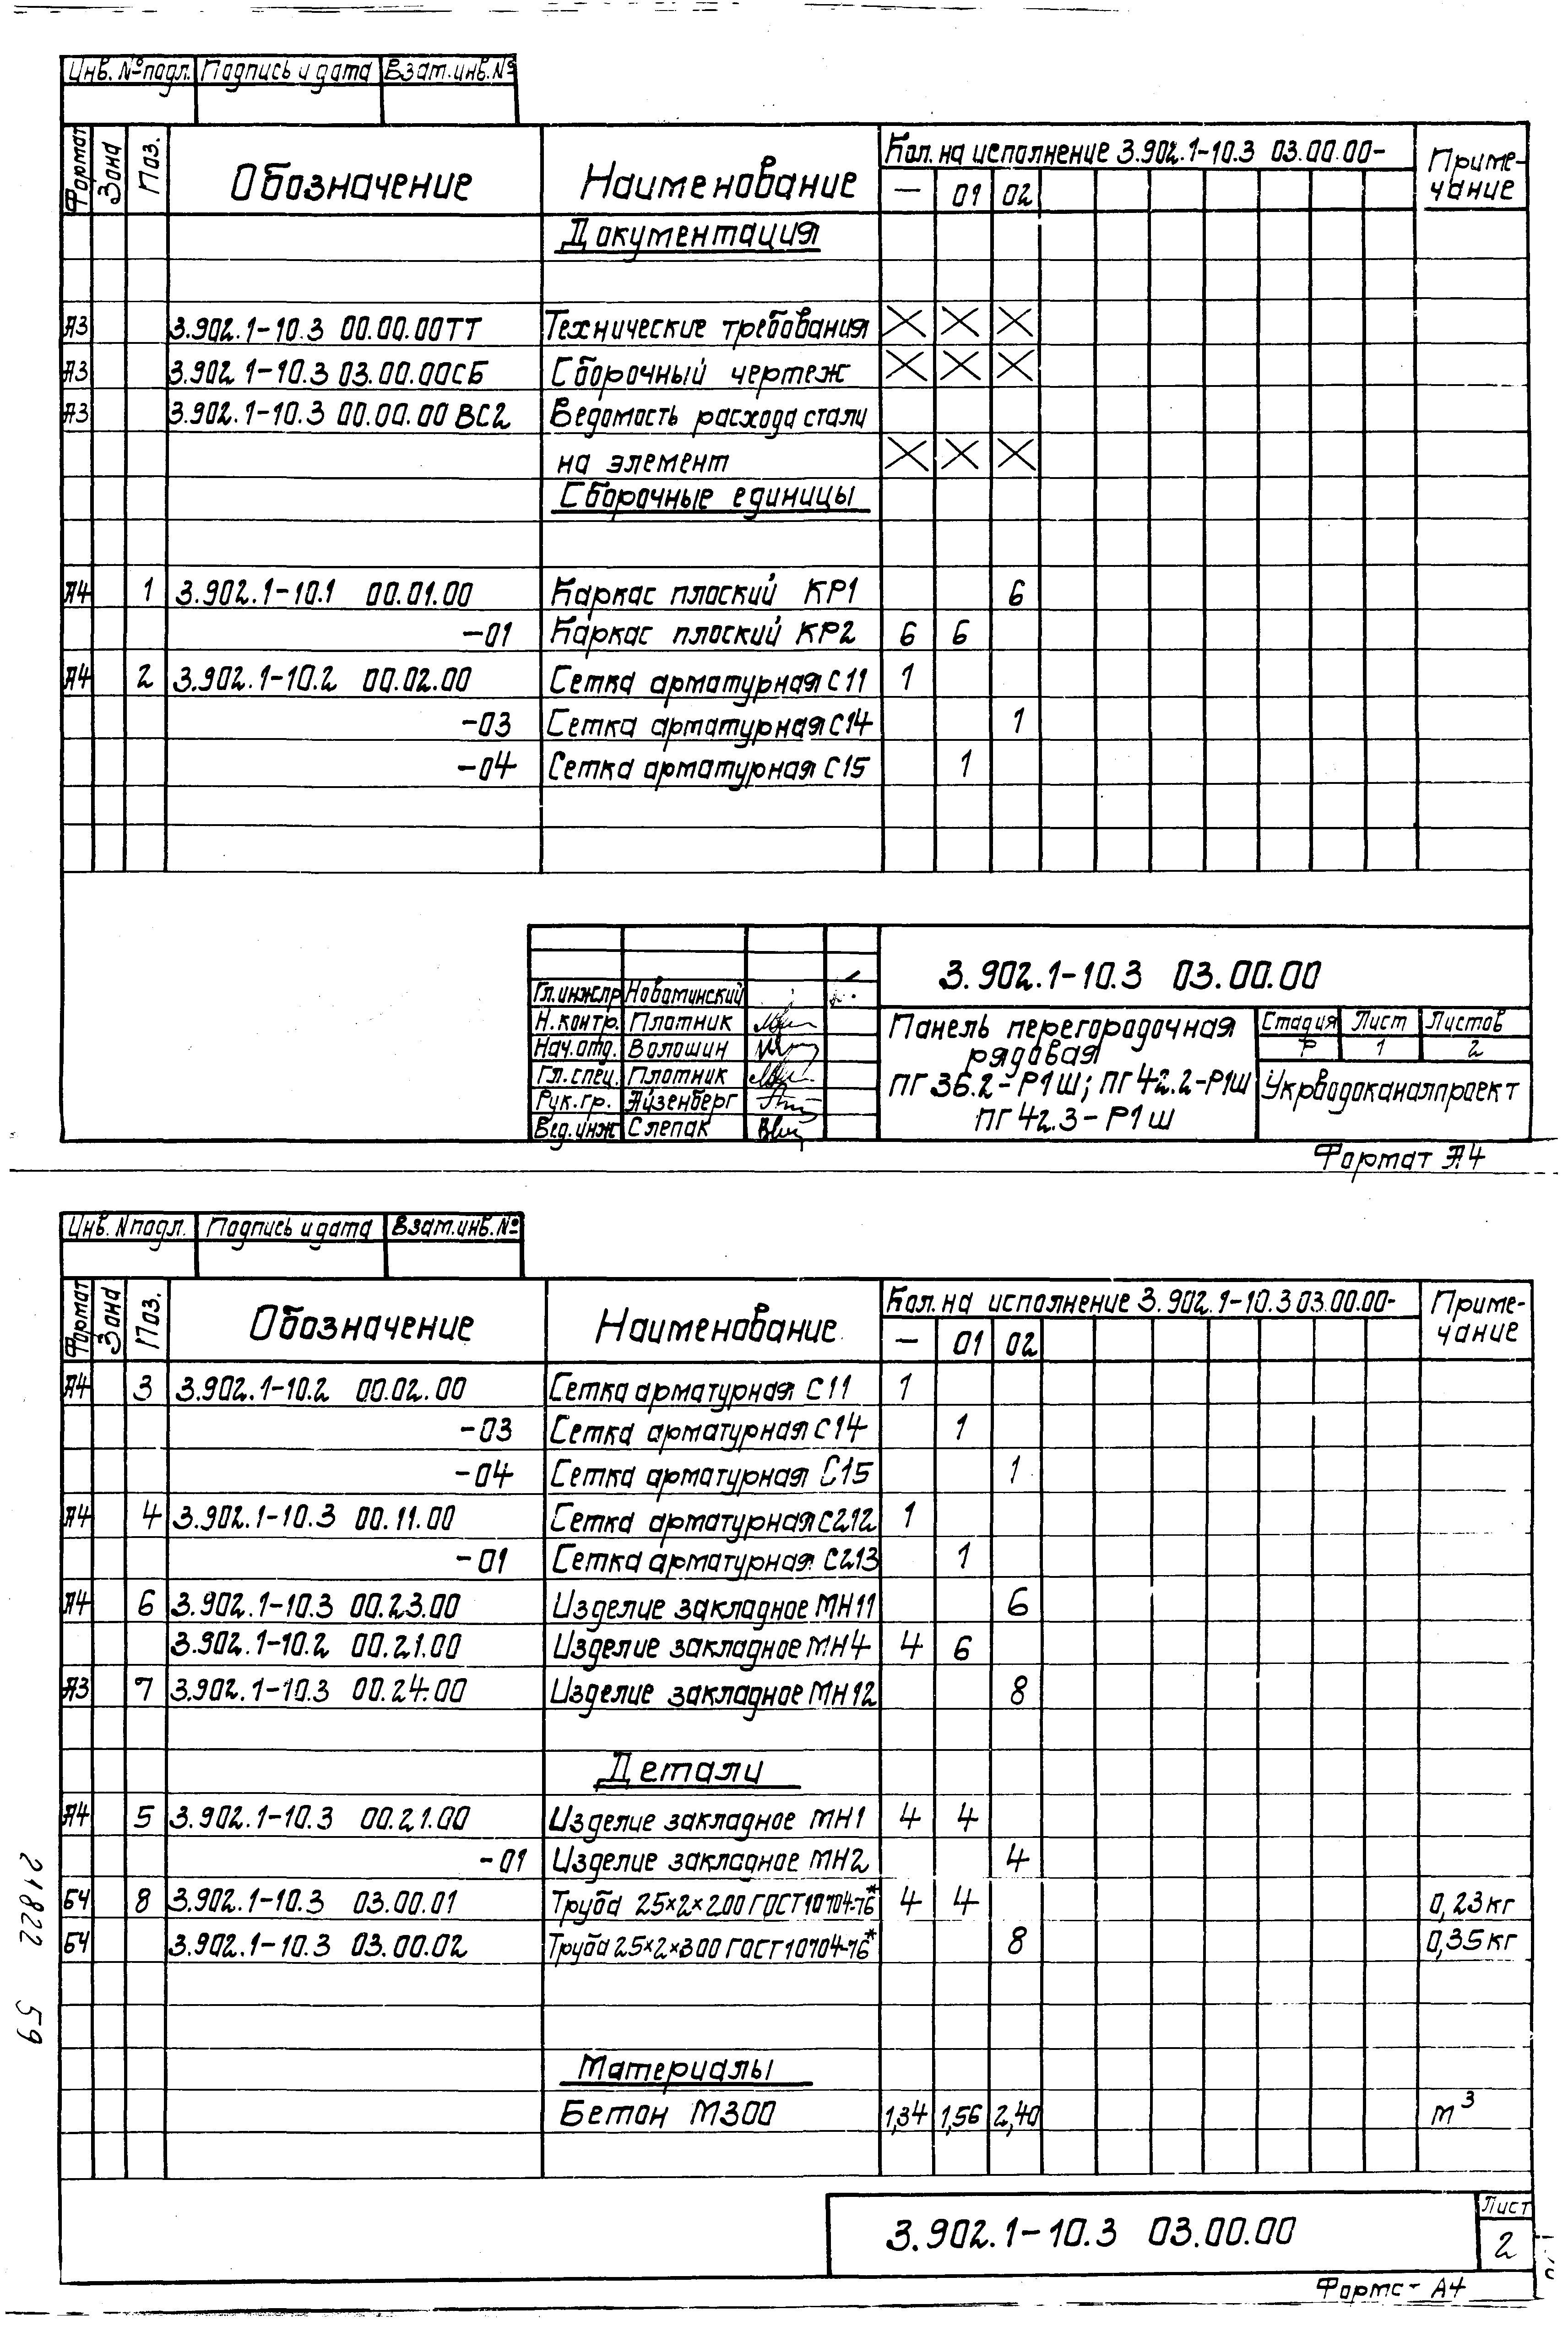 Инв. № подл. Подпись и дата Взам. инв. №
Формат Зона Поз. Обозначение Наименование Кол. на исполнение 3.902.1-10.3 03.00.00- Приме-чание
— 01 02
Документация
А3 3.902.1-10.3 00.00.00ТТ Технические требования
А3 3.902 1-10.3 03.00.00СБ Сборочный чертеж
А3 3.902.1-10.3 00.00.00 ВС2 Ведомость расхода стали
на элемент
Сборочные единицы
А4 1 3.902.1-10.1 00.01.00 Каркас плоский КР1 6
-01 Каркас плоский КР2 6 6
А4 2 3.902.1-10.2 00.02.00 Сетка арматурная С11 1
-03 Сетка арматурная С14 1
-04 Сетка арматурная С15 1
3.902.1-10.3 03.00.00
Гл.инж.пр Новоминский
Н.контр. Плотник
Нач.отд. Волошин
Гл.спец. Плотник
Рук.гр. Айзенберг
Вед.инж Слепак
Панель перегородочная
рядовая
ПГ36.2-Р1Ш; ПГ42.2-Р1Ш
ПГ42.3-Р1Ш
Стадия Лист Листов
Р 1 2
Укрводоканалпроект
Формат А4
Инв. N подл. Подпись и дата Взам.инв.№
Формат Зона Поз. Обозначение Наименование Кол. на исполнение 3.902.1-10.3 03.00.00- Приме-чание
— 01 02
А4 3 3.902.1-10.2 00.02.00 Сетка арматурная С11 1
-03 Сетка арматурная С14 1
-04 Сетка арматурная С15 1
А4 4 3.902.1-10.3 00.11.00 Сетка арматурная С212 1
-01 Сетка арматурная С213 1
А4 6 3.902.1-10.3 00.23.00 Изделие закладное МН11 6
3.902.1-10.2 00.21.00 Изделие закладное МН4 4 6
А3 7 3.902.1-10.3 00.24.00 Изделие закладное МН12 8
Детали
А4 5 3.902.1-10.3 00.21.00 Изделие закладное МН1 4 4
-01 Изделие закладное МН2 4
БЧ 8 3.902.1-10.3 03.00.01 Труба 25×2×200 ГОСТ10704-76* 4 4 0,23кг
БЧ 3.902.1-10.3 03.00.02 Труба 25×2×300 ГОСТ10704-76* 8 0,35кг
Материалы
Бетон М300 1,34 1,56 2,40 м³
21822 59
3.902.1-10.3 03.00.00
Лист
2
А4